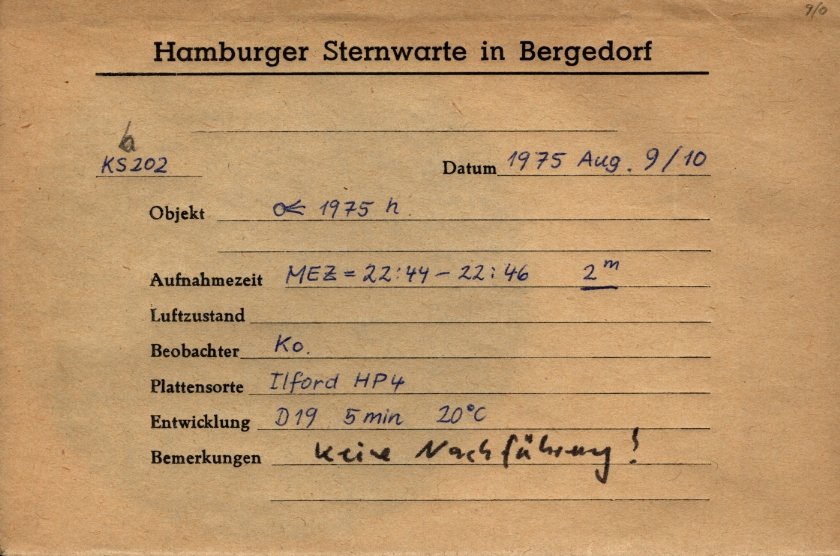 9/0
Hamburger Sternwarte in Bergedorf
b
KS202 Datum 1975 Aug. 9/10
Objekt ☄ 1975 h.
Aufnahmezeit MEZ = 22:44 – 22:46 2ᵐ
Luftzustand
Beobachter Ko.
Plattensorte Ilford HP4
Entwicklung D19 5 min 20°C
Bemerkungen keine Nachführung!